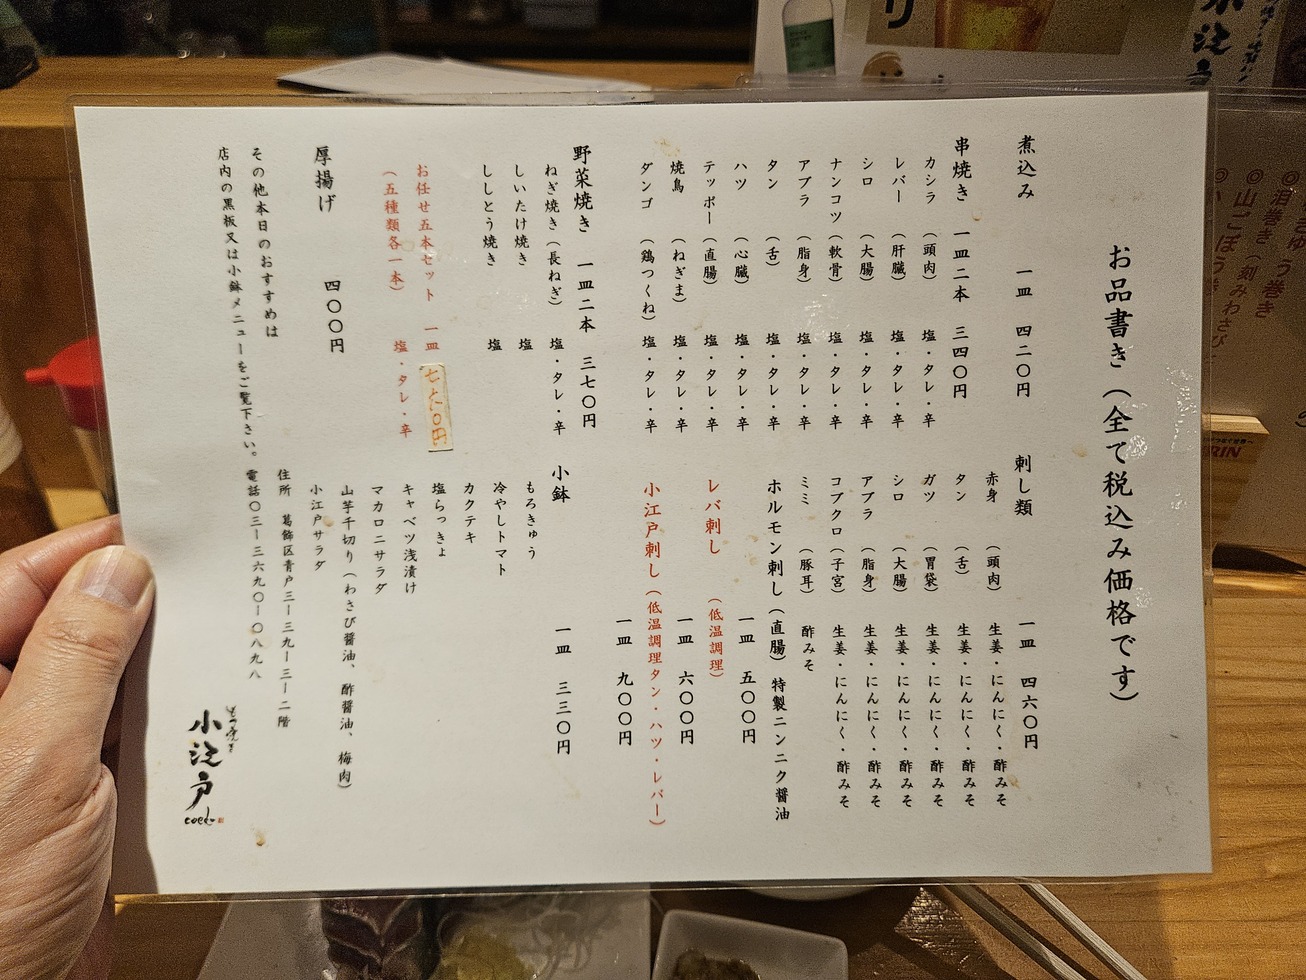 お品書き（全て税込み価格です）
煮込み　一皿　四二〇円
串焼き　一皿二本　三四〇円
カシラ（頭肉）塩・タレ・辛
レバー（肝臓）塩・タレ・辛
シロ（大腸）塩・タレ・辛
ナンコツ（軟骨）塩・タレ・辛
アブラ（脂身）塩・タレ・辛
タン（舌）塩・タレ・辛
ハツ（心臓）塩・タレ・辛
テッポー（直腸）塩・タレ・辛
焼鳥（ねぎま）塩・タレ・辛
ダンゴ（鶏つくね）塩・タレ・辛
野菜焼き　一皿二本　三七〇円
ねぎ焼き（長ねぎ）塩・タレ・辛
しいたけ焼き　塩
ししとう焼き　塩
お任せ五本セット　一皿　七七〇円
（五種類各一本）塩・タレ・辛
厚揚げ　四〇〇円
刺し類　一皿　四六〇円
赤身（頭肉）生姜・にんにく・酢みそ
タン（舌）生姜・にんにく・酢みそ
ガツ（胃袋）生姜・にんにく・酢みそ
シロ（大腸）生姜・にんにく・酢みそ
アブラ（脂身）生姜・にんにく・酢みそ
コブクロ（子宮）生姜・にんにく・酢みそ
ミミ（豚耳）酢みそ
ホルモン刺し（直腸）特製ニンニク醤油
一皿　五〇〇円
レバ刺し（低温調理）
一皿　六〇〇円
小江戸刺し（低温調理タン・ハツ・レバー）
一皿　九〇〇円
小鉢　一皿　三三〇円
もろきゅう
冷やしトマト
カクテキ
塩らっきょ
キャベツ浅漬け
マカロニサラダ
山芋千切り（わさび醤油、酢醤油、梅肉）
小江戸サラダ
その他本日のおすすめは
店内の黒板又は小鉢メニューをご覧下さい。
住所　葛飾区青戸三ー三九ー三ー二階
電話〇三ー三六九〇ー〇八九八
もつ焼き
小江戸
coedo
小江戸
◎山ごぼう巻き
KIRIN